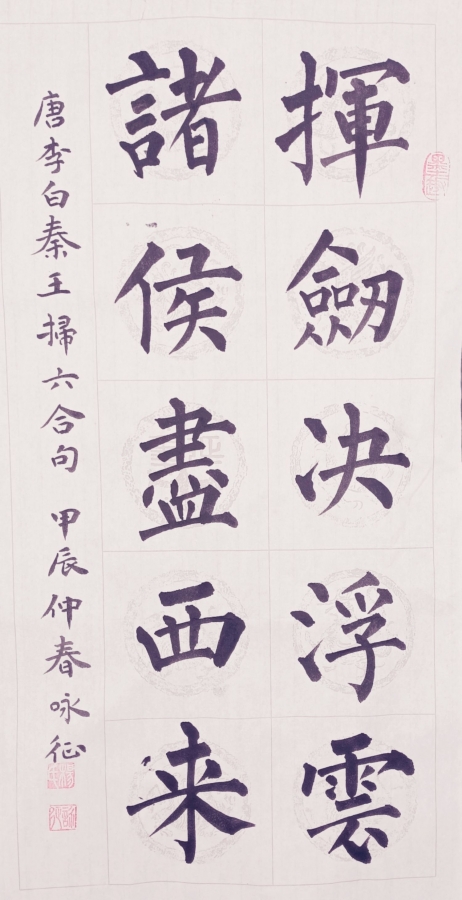 揮劒决浮雲
諸侯盡西来
唐李白秦王掃六合句 甲辰仲春咏征